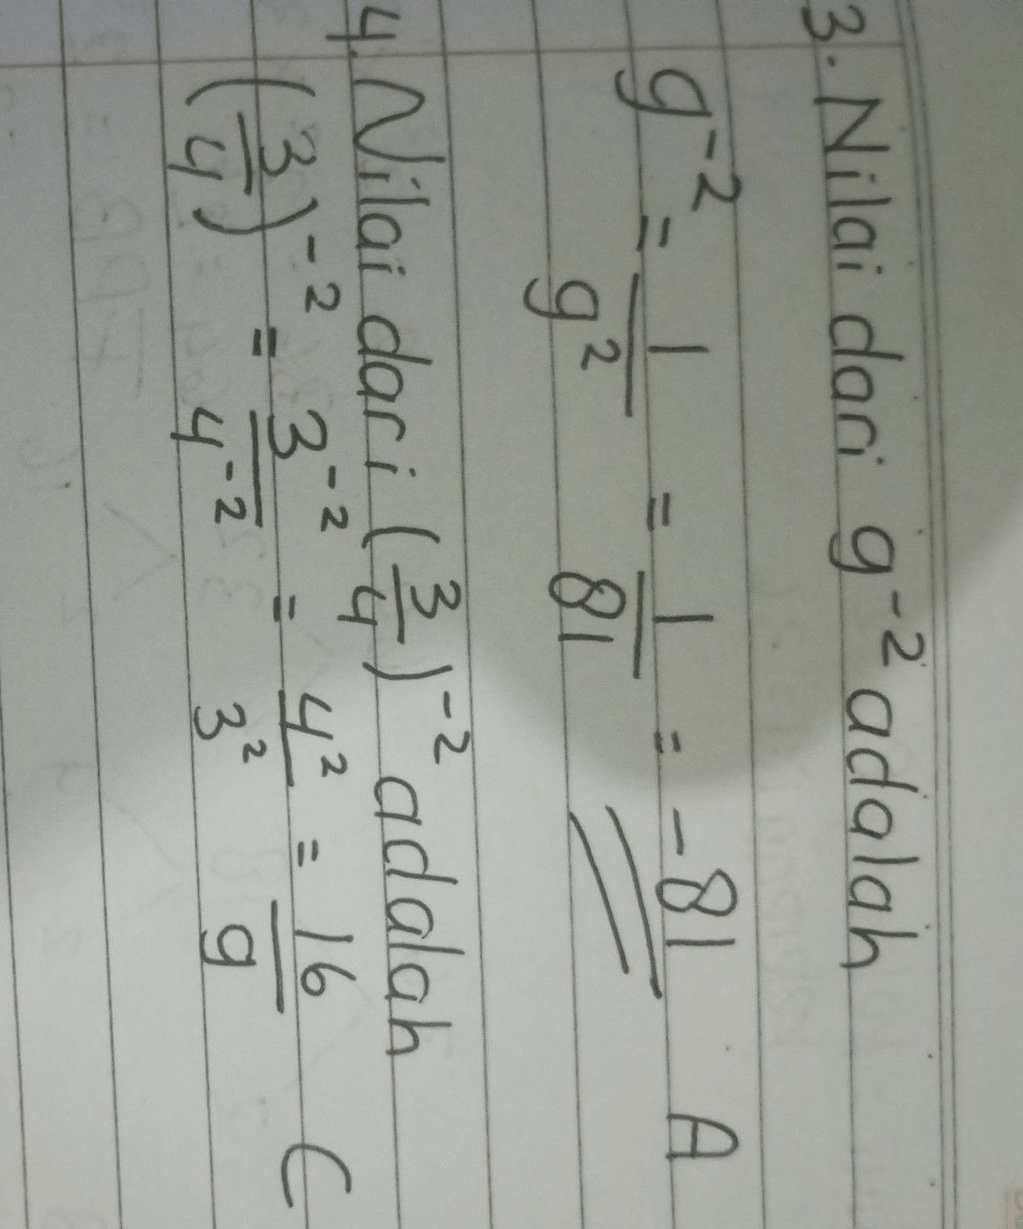 3. Nilai dari 9⁻² adalah
9⁻² = 1/9² = 1/81 = -81 A
4. Nilai dari (3/4)⁻² adalah
(3/4)⁻² = 3⁻²/4⁻² = 4²/3² = 16/9 C